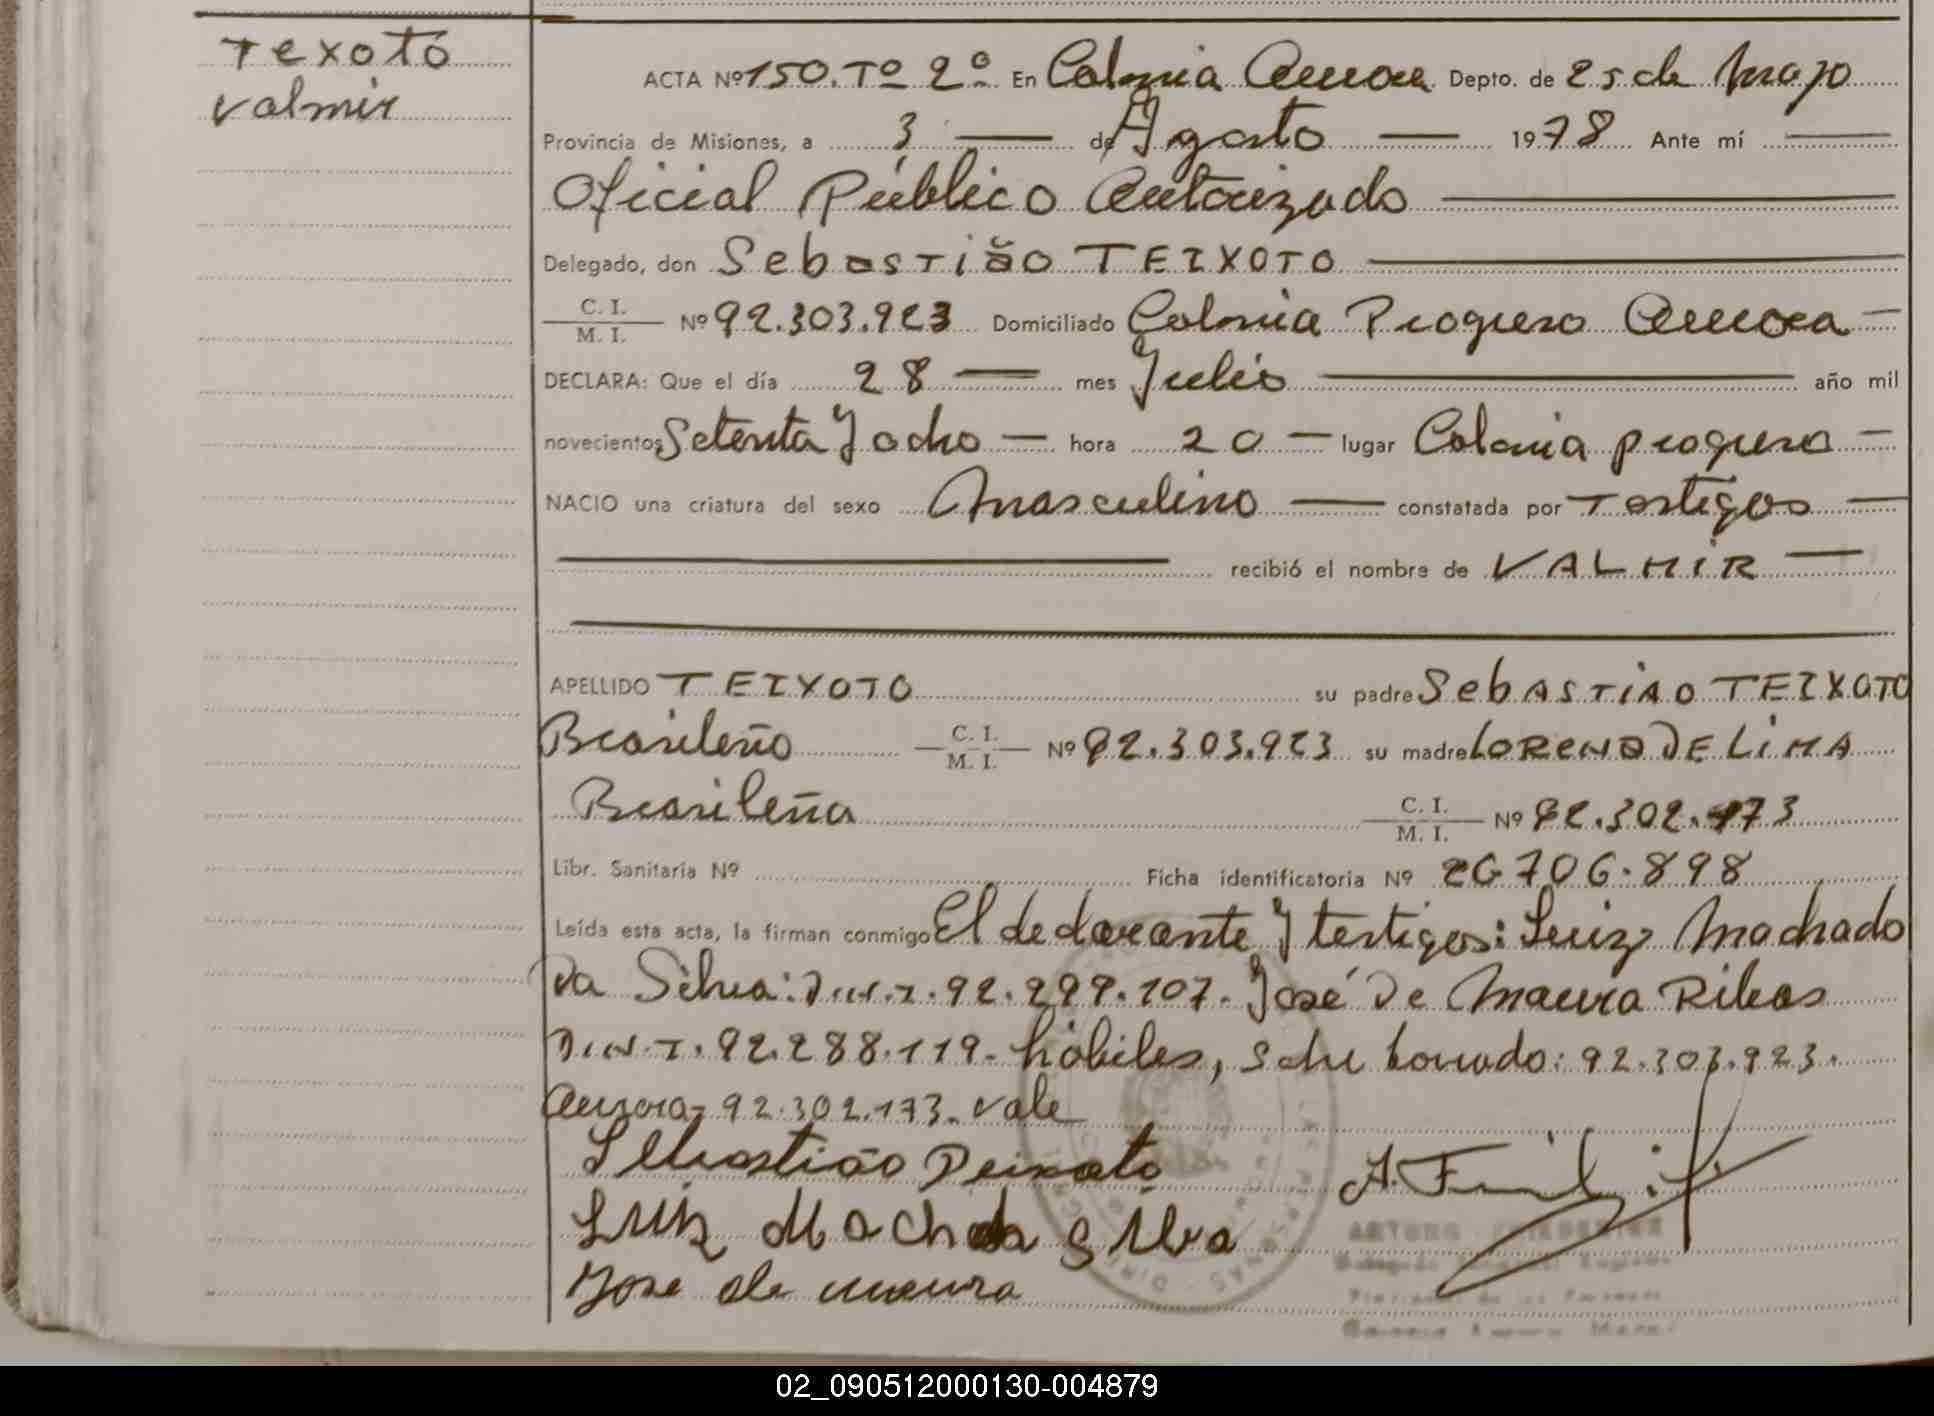 Texoto
Valmir
ACTA Nº 150. Tº 2º En Colonia Aurora Depto. de 25 de Mayo
Provincia de Misiones, a 3 — de Agosto — 1978 Ante mí
Oficial Público Autorizado
Delegado, don Sebastião TEIXOTO
C. I. / M. I. Nº 92.303.923 Domiciliado Colonia Progreso Aurora —
DECLARA: Que el día 28 — mes Julio — año mil
novecientos Setenta y ocho — hora 20 — lugar Colonia progreso —
NACIO una criatura del sexo Masculino — constatada por Testigos —
— recibió el nombre de VALMIR —
APELLIDO TEIXOTO su padre Sebastião TEIXOTO
Brasileño C. I. / M. I. Nº 92.303.923 su madre LORENO DE LIMA
Brasileña C. I. / M. I. Nº 92.302.173
Libr. Sanitaria Nº Ficha identificatoria Nº 26706.898
Leída esta acta, la firman conmigo El declarante y testigos: Luiz Machado
Da Silva: D.N.I. 92.299.107. José De Maura Ribas
D.N.I. 92.288.119- hábiles, sobre borrado: 92.303.923.
Aurora- 92.302.173- vale
Sebastião Peixoto
Luiz Machado Silva
Jose de moura
A. F
ARTURO
02_090512000130-004879